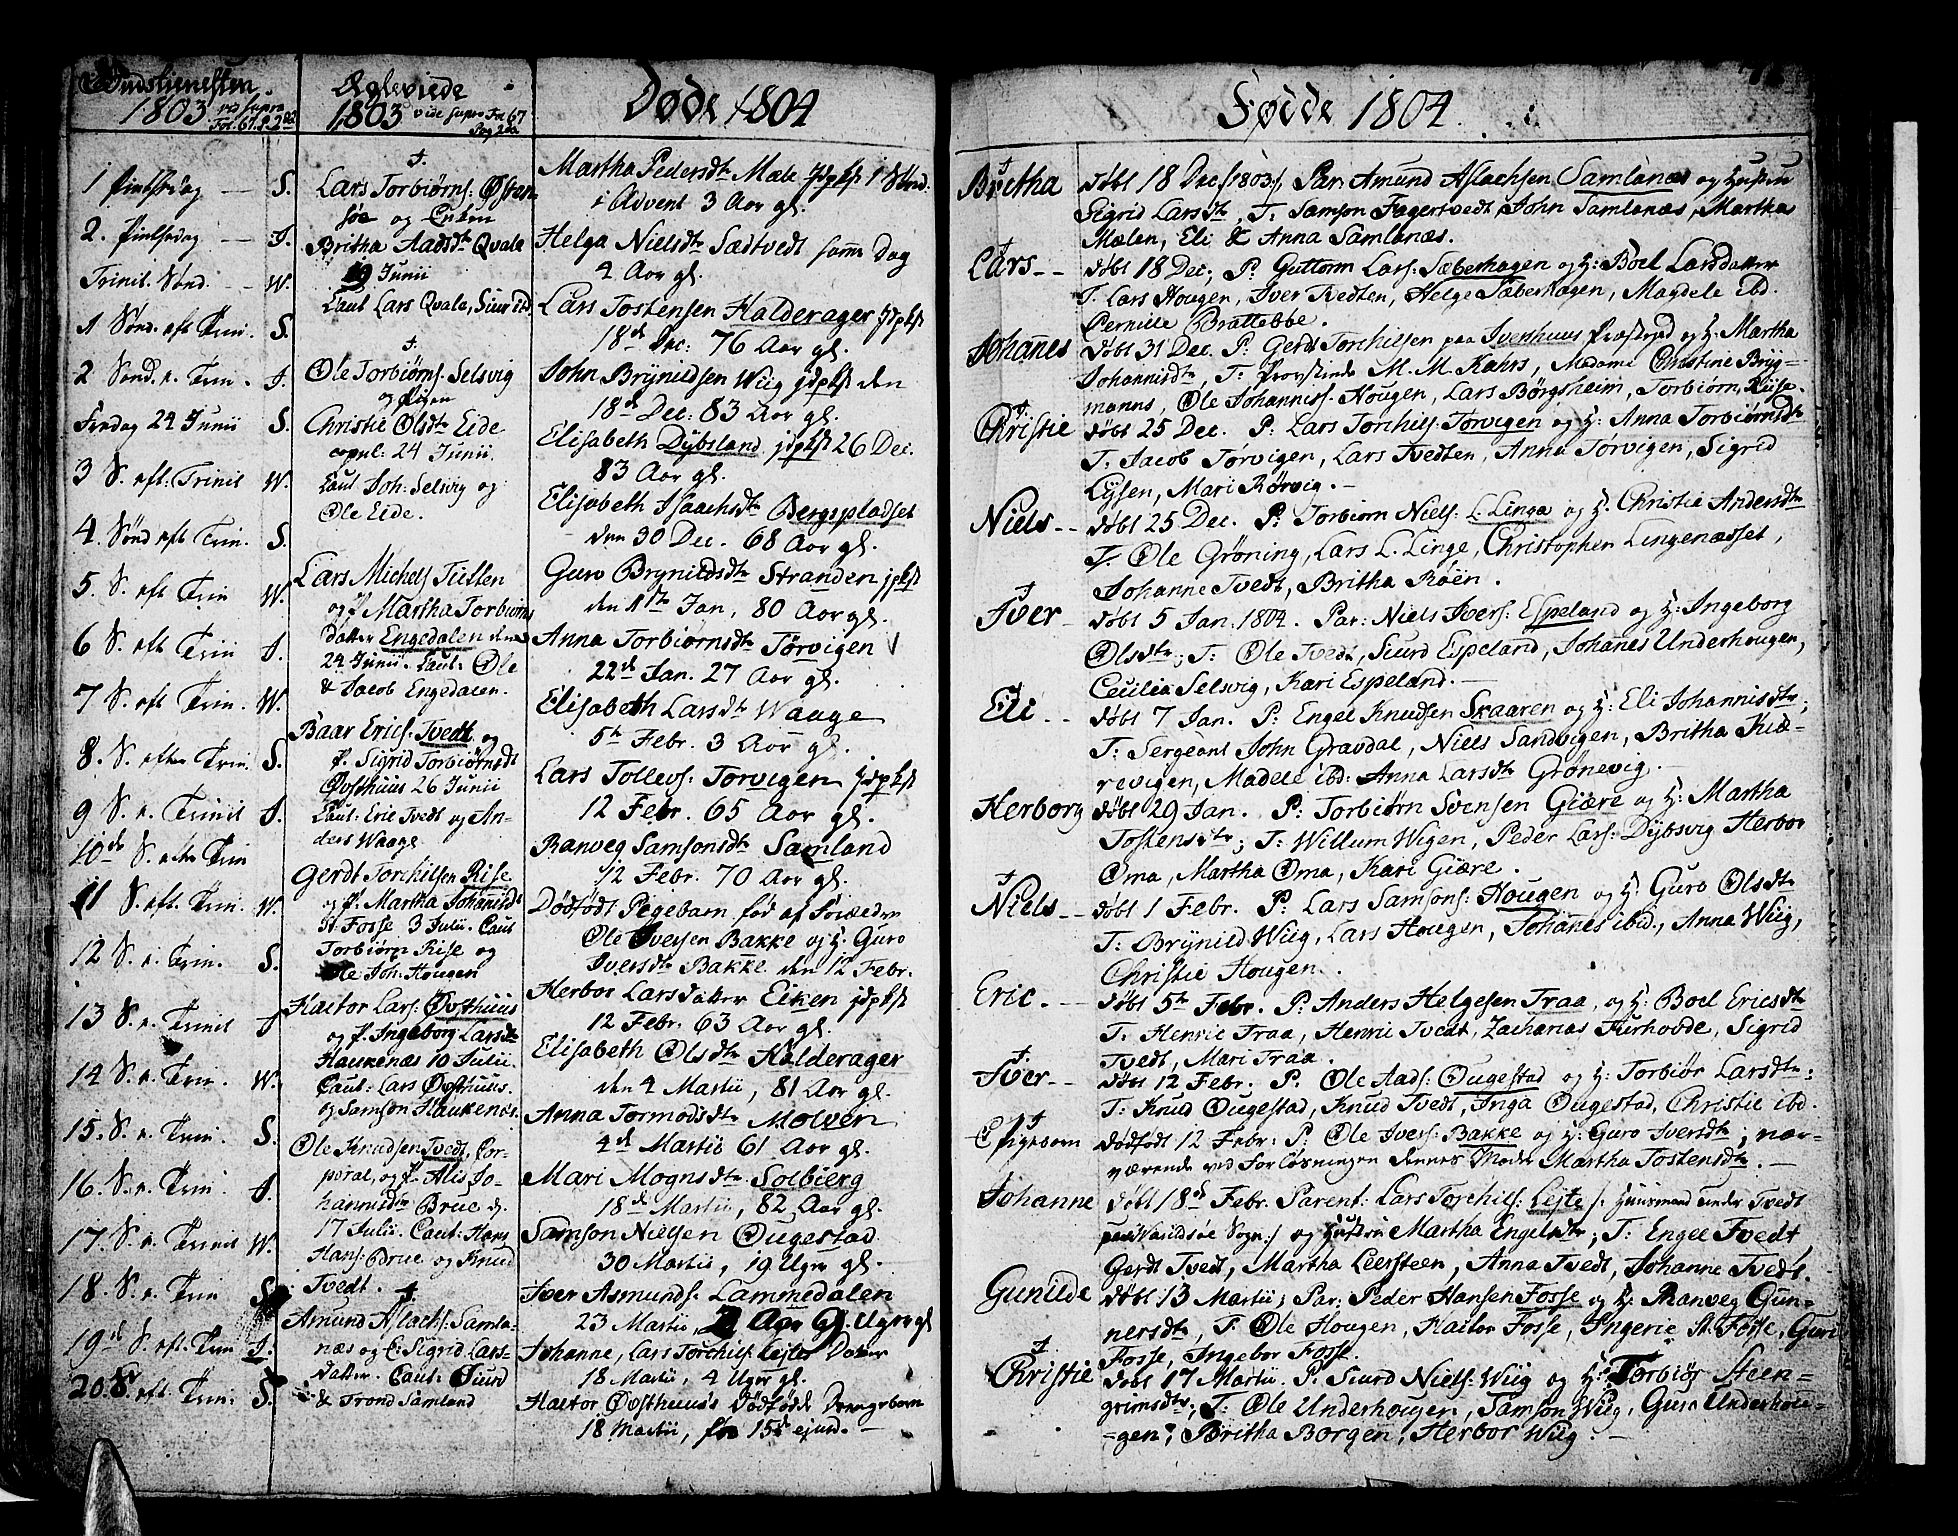 Gudstienesten
1803 vid supra
Fol. 67. P. 2da
1 Pintsedag — S.
2. Pintsedag — J.
Trinit. Sønd. — W.
1 Sønd. eft Trin. S.
2 Sønd. e. Trin. J.
Fredag 24 Junii S.
3 S. eft. Trinit W.
4. Sønd eft Trin. S.
5. S. eft Trin W.
6 S. eft Trin J.
7 S. eft Trin. W.
8. S. efter Trin. S.
9 S. e. Trinit J.
10de S. efter Trin
11 S. eft. Trin. W.
12 S. e. Trin. S.
13 S. e. Trinit J
14 S. e. Trin. W.
15. S. e. Trin. S.
16. S. e. Trin J.
17. S. e. Trinit W.
18. S. e. Trin S.
19de S. eft Trin J.
20. S. eft. Trin: S.
Ægteviede
1803 vide supra Fol 67
Pag 2da
Lars Torbiørns: Østen-
søe og Enken
Britha Aadsdtr Qvale
19 Junii
Caut Lars Qvale, Siur ibd
Ole Torbiørns: Selsvig
og Pigen
Christie Olsdtr Eide
copul: 24 Junii.
Caut Joh: Selsvig og
Ole Eide.
Lars Michels Tietten
og P. Martha Torbiørns
Datter Engedalen den
24 Junii. Caut: Ole
& Jacob Engedalen.
Baar Erics: Tvedt og
P. Sigrid Torbiørnsdt
Østhuus 26 Junii
Caut: Eric Tvedt og An-
ders Waage
Gerdt Torchilsen Rise
og P. Martha Johanisdt
St. Fosse 3 Julii. Caut
Torbiørn Rise og
Ole Joh: Hougen
Hactor Lars: Østhuus
og P. Ingeborg Larsdtr
Haukenæs 10 Julii.
Caut: Lars Østhuus.
og Samson Haukenæs.
Ole Knudsen Tvedt, Cor-
poral, og P. Alis Jo-
hannisdtr Brue d.
17 Julii. Caut: Hans
Hans: Brue og Knud
Tvedt.
Amund Aslachs: Samla-
næs og P: Sigrid Lars-
datter. Caut: Siurd
& Trond Samland
Døde 1804
Martha Pedersdtr Mæle jdpkst 1 Sønd:
i Advent 3 Aar gl.
Helga Nielsdtr Sædtvedt samme Dag
4 Aar gl.
Lars Tostensen Halderager jdpkst
18de Dec: 76 Aar gl.
John Brynildsen Wiig jdpkst den
18de Dec: 83 Aar gl.
Elisabeth Dybsland jdpkst 26 Dec.
83 Aar gl.
Elisabeth Isaachsdtr Bergspladset
den 30 Dec. 68 Aar gl.
Guro Brynildsdtr Stranden jpkst
den 1ste Jan, 80 Aar gl.
Anna Torbiørnsdtr Tørvigen
22de Jan. 27 Aar gl.
Elisabeth Larsdtr Waage
5te Febr. 3 Aar gl.
Lars Tollevs: Torvigen jdpkst
12 Febr. 65 Aar gl.
Ranveg Samsonsdtr Samland
12 Febr. 70 Aar gl.
Dødfødt Pigebarn før af Forældre
Ole Iversen Bakke og H. Guro
Iversdtr Bakke den 12 Febr.
Herbor Larsdatter Eiken jdpkst
12 Febr. 63 Aar gl.
Elisabeth Olsdtr Halderager
den 4 Martii, 81 Aar gl.
Anna Tormodsdtr Molven
4de Martii 61 Aar gl.
Mari Mognsdtr Solbierg
18de Martii, 82 Aar gl.
Samson Nielsen Ougestad
30 Martii, 19 Uger gl.
Iver Asmunds: Lammedalen
23 Martii, 2 Aar 9 Uger gl
Johanne, Lars Torchils: Lejtes Datter
18 Martii, 4 Uger gl.
Hactor Østhuus's Dødfødde Drengebarn
18 Martii, fød 15de ejusd. —
Fødde 1804
Britha døbt 18 Dec /:1803:/, Par. Amund Aslachsen Samlanæs og Hustru
Sigrid Larsdtr, T: Samson Fagertvedt, John Samlanæs, Martha
Mælen, Eli & Anna Samlanæs.
Lars — døbt 18 Dec; P: Guttorm Lars: Sæberhagen og H: Boel Larsdatter
T. Lars Hougen, Iver Tvedten, Helge Sæberhagen, Magdele ibd.
Pernille Brattebbe.
Johanes døbt 31 Dec. P: Gerdt Torchilsen paa Ivershuus Præstegrd og H: Martha
Johannisdtr, T: Provstinde M. M. Kahrs, Madame Christine Brüg-
manns, Ole Johanniss. Hougen, Lars Börgsheim, Torbiørn Riise
Christie døbt 25 Dec. P: Lars Torchils: Torvigen og H: Anna Torbiørnsdtr
T: Jacob Tørvigen, Lars Tvedten, Anna Tørvigen, Sigrid
Lysen, Mari Rørvig. —
Niels — døbt 25 Dec. P: Torbiørn Niels: L. Linga og H. Christie Andersdtr
T: Ole Grøning, Lars L. Linge, Christopher Lingenæsset,
Johanne Tvedt, Britha Røen.
Iver — døbt 5 Jan. 1804. Par: Niels Ivers: Espeland og H: Ingeborg
Olsdtr; T: Ole Tvedt, Siurd Espeland, Johanes Underhougen,
Cecilia Selsvig, Kari Espeland. —
Eli — døbt 7 Jan. P: Engel Knudsen Skaaren og H: Eli Johannisdtr,
T: Sergeant John Gravdal, Niels Sandvigen, Britha Kiæ-
revigen, Madele ibd: Anna Larsdtr Grønevig. —
Herborg døbt 29 Jan. P: Torbiørn Svensen Giære og H: Martha
Tostensdtr; T: Willum Wigen, Peder Lars: Dybsvig Herbor
Oma, Martha Oma, Kari Giære.
Niels — døbt 1 Febr. P: Lars Samsons: Hougen og H: Guro Olsdtr
T: Brynild Wiig, Lars Hougen, Johanes ibid., Anna Wiig,
Christie Hougen.
Eric. — døbt 5te Febr. P: Anders Helgesen Traa, og H: Boel Ericsdtr
T: Henric Traa, Henric Tvedt, Zacharias Furhovde, Sigrid
Tvedt, Mari Traa.
Iver — døbt 12 Febr. P. Ole Aads: Ougestad og H: Torbiør Larsdtr:
T: Knud Ougestad, Knud Tvedt, Inga Ougestad, Christie ibd.
Et Pigebarn dødfødt 12 Febr: P: Ole Ivers: Bakke og H: Guro Iversdtr; nær-
værende ved Forløsningen dennes Moder Martha Tostensdtr. —
Johanne døbt 18de Febr. Parent: Lars Torchils: Lejte /: Huusmand under Tvedt
paa Varildsøe Sogn:/ og Hustru Martha Engelsdtr; T: Engel Tvedt
Gerdt Tvedt, Martha Leersteen, Anna Tvedt, Johanne Tvedt.
Gunilde døbt 13 Martii; Par: Peder Hansen Fosse og H: Ranveg Gun-
nersdtr, T: Ole Hougen, Hactor Fosse, Ingerie St. Fosse, Guri
Fosse, Ingebor Fosse.
Christie døbt 17 Martii. P. Siurd Niels: Wiig og H: Torbiør Steen-
grimsdtr; T: Ole Underhougen, Samson Wiig, Guro Underhou-
gen, Britha Borgen, Herbor Wiig. —